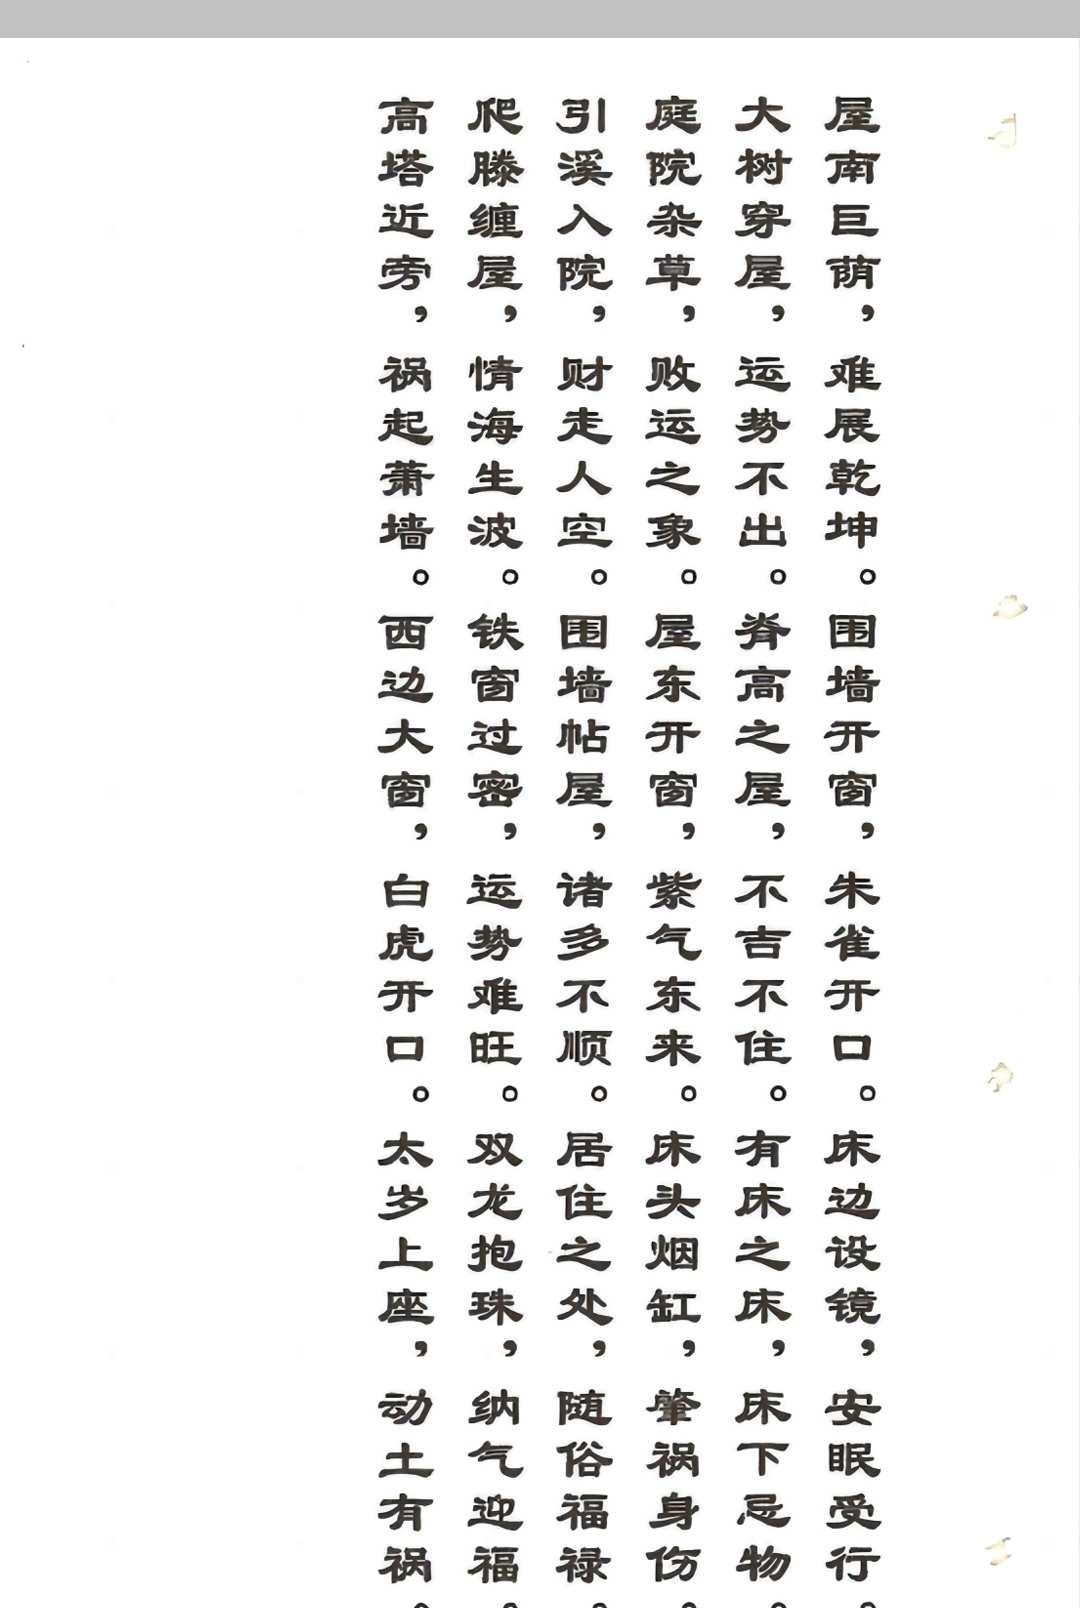 屋南巨荫，难展乾坤。围墙开窗，朱雀开口。床边设镜，安眠受行。
大树穿屋，运势不出。脊高之屋，不吉不住。有床之床，床下忌物。
庭院杂草，败运之象。屋东开窗，紫气东来。床头烟缸，肇祸身伤。
引溪入院，财走人空。围墙帖屋，诸多不顺。居住之处，随俗福禄。
爬滕缠屋，情海生波。铁窗过密，运势难旺。双龙抱珠，纳气迎福。
高塔近旁，祸起萧墙。西边大窗，白虎开口。太岁上座，动土有祸。